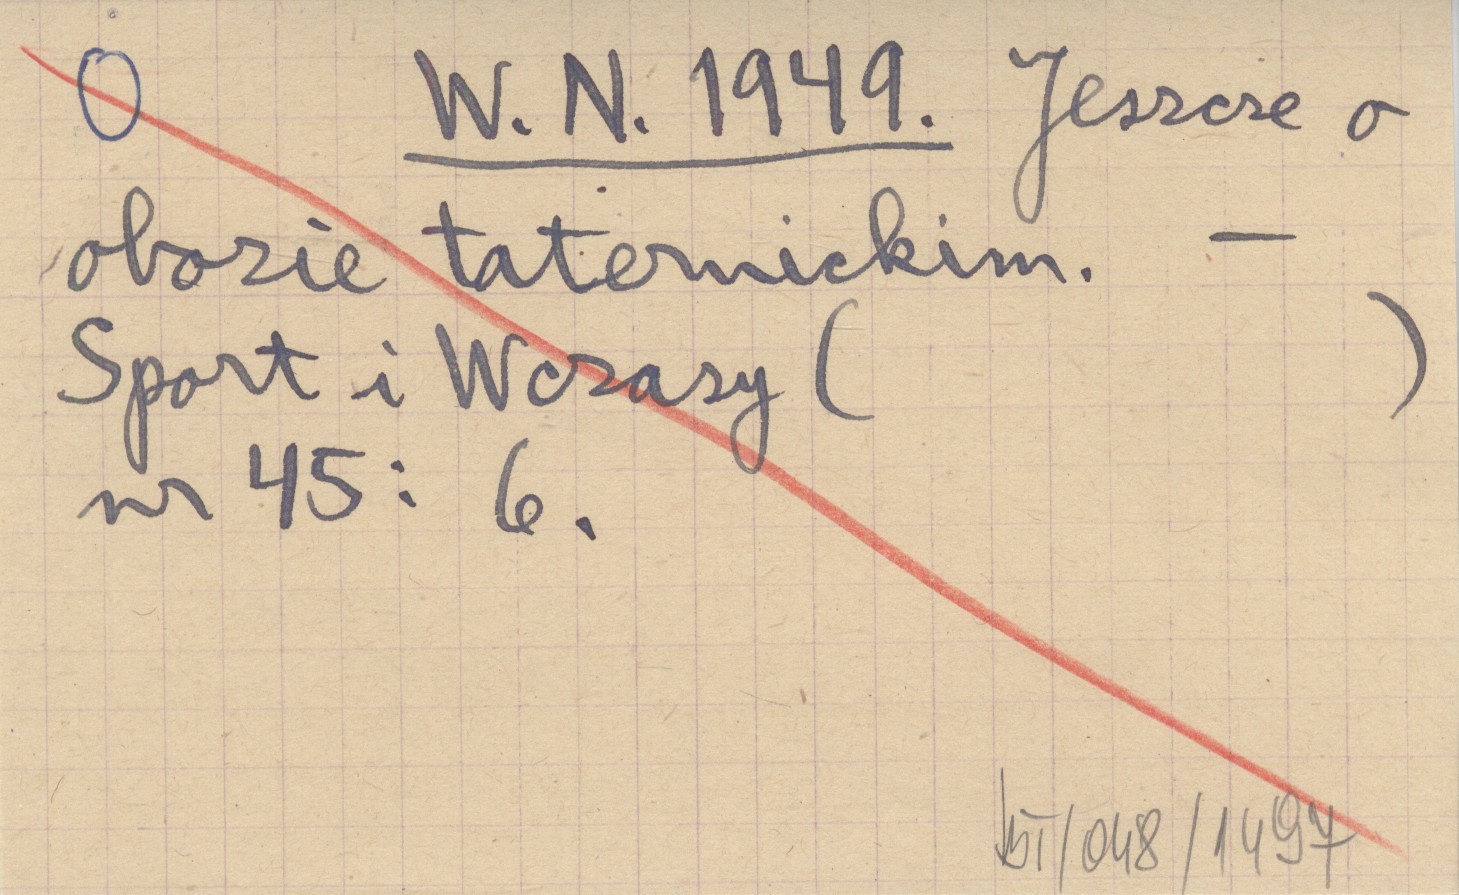 O W. N. 1949. Jeszcze o
obozie taternickim. —
Sport i Wczasy ( )
nr 45: 6.
/048/1497